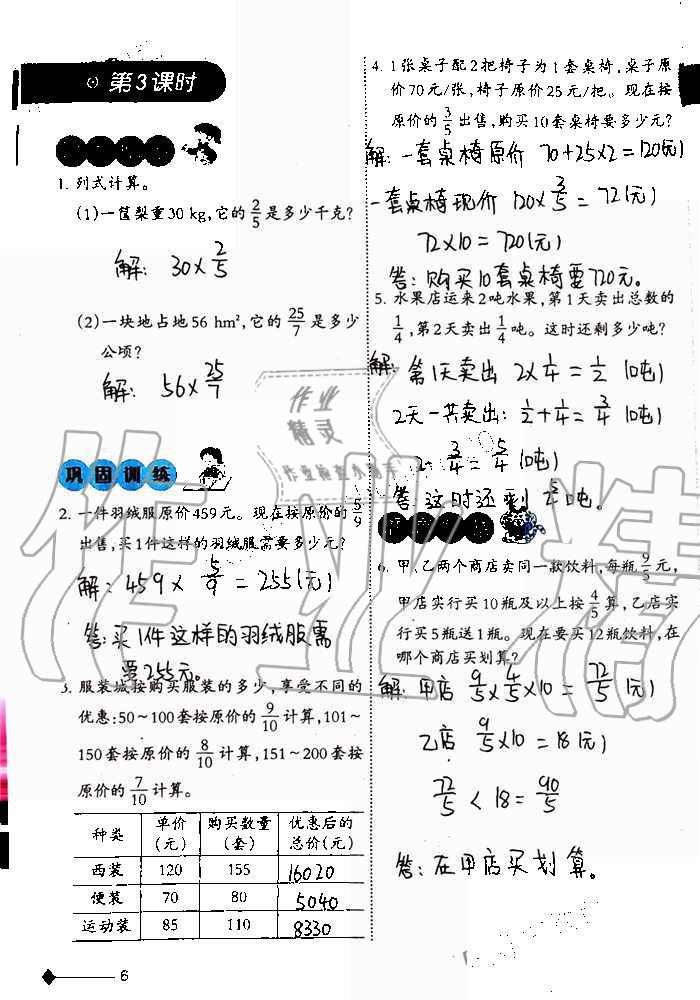 第3课时
1. 列式计算。
(1)一筐梨重30 kg,它的2/5是多少千克?
解: 30×2/5
(2)一块地占地56 hm²,它的25/7是多少
公顷?
解: 56×25/7
巩固训练
2. 一件羽绒服原价459元。现在按原价的5/9
出售,买1件这样的羽绒服需要多少元?
解: 459×5/9=255(元)
答:买1件这样的羽绒服需
要255元。
3. 服装城按购买服装的多少,享受不同的
优惠:50~100套按原价的9/10计算,101~
150套按原价的8/10计算,151~200套按
原价的7/10计算。
种类 单价(元) 购买数量(套) 优惠后的总价(元)
西装 120 155 16020
便装 70 80 5040
运动装 85 110 8330
6
4. 1张桌子配2把椅子为1套桌椅,桌子原
价70元/张,椅子原价25元/把。现在按
原价的3/5出售,购买10套桌椅要多少元?
解:一套桌椅原价 70+25×2=120(元)
一套桌椅现价 120×3/5=72(元)
72×10=720(元)
答:购买10套桌椅要720元。
5. 水果店运来2吨水果,第1天卖出总数的
1/4,第2天卖出1/4吨。这时还剩多少吨?
解:第1天卖出 2×1/4=1/2(吨)
2天一共卖出:1/2+1/4=3/4(吨)
2-3/4=5/4(吨)
答:这时还剩 吨。
6. 甲、乙两个商店卖同一款饮料,每瓶9/5元,
甲店实行买10瓶及以上按4/5算,乙店实
行买5瓶送1瓶。现在要买12瓶饮料,在
哪个商店买划算?
解:甲店 9/5×4/5×10=72/5(元)
乙店 9/5×10=18(元)
72/5<18=90/5
答:在甲店买划算。
作业
精灵
作业精